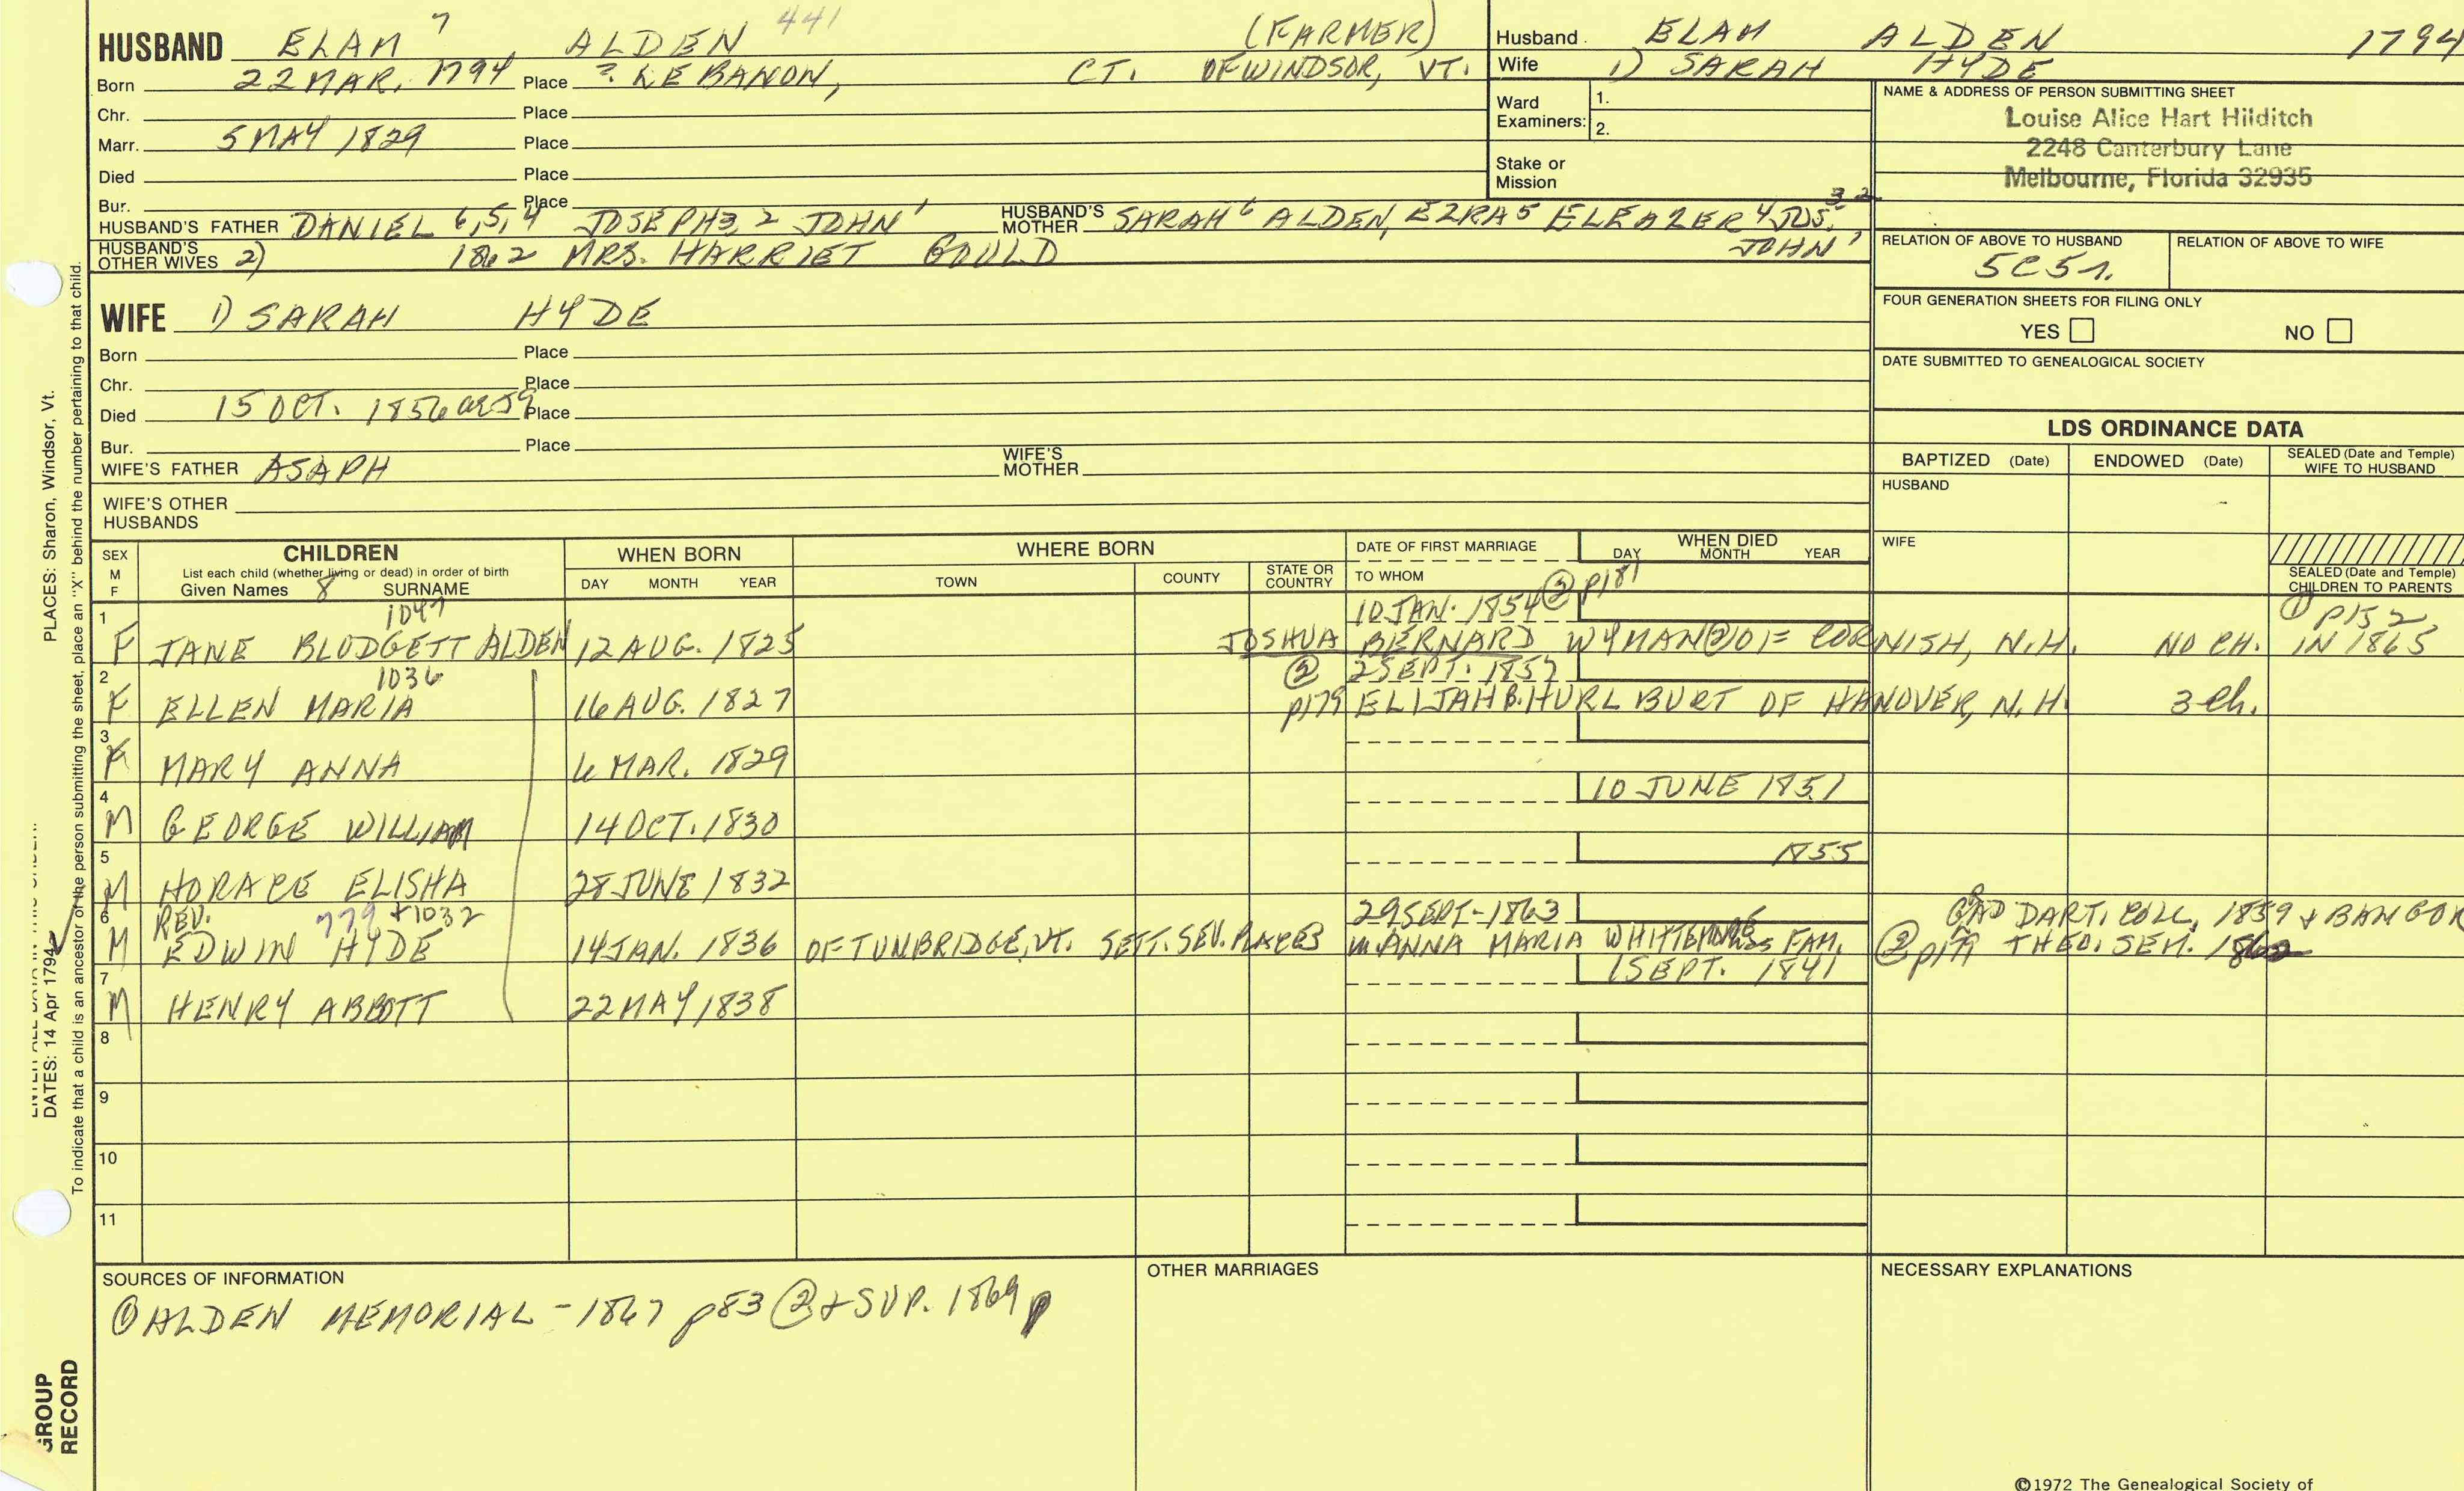 HUSBAND ELAM 7 ALDEN 441 (FARMER)
Born 22 MAR. 1794 Place ? LEBANON, CT. OF WINDSOR, VT.
Chr. Place
Marr. 5 MAY 1829 Place
Died Place
Bur. Place
HUSBAND'S FATHER DANIEL 6,5,4 JOSEPH 3,2 JOHN 1 HUSBAND'S MOTHER SARAH 6 ALDEN, EZRA 5 ELEAZER 4 JOS. 3-2 JOHN 1
HUSBAND'S OTHER WIVES 2) 1862 MRS. HARRIET GOULD
Husband ELAM ALDEN 1794
Wife 1) SARAH HYDE
Ward Examiners: 1.
2.
Stake or Mission
NAME & ADDRESS OF PERSON SUBMITTING SHEET
Louise Alice Hart Hilditch
2248 Canterbury Lane
Melbourne, Florida 32935
RELATION OF ABOVE TO HUSBAND RELATION OF ABOVE TO WIFE
5C5r.
FOUR GENERATION SHEETS FOR FILING ONLY
YES NO
DATE SUBMITTED TO GENEALOGICAL SOCIETY
WIFE 1) SARAH HYDE
Born Place
Chr. Place
Died 15 OCT. 1856 OR 59 Place
Bur. Place
WIFE'S FATHER ASAPH WIFE'S MOTHER
WIFE'S OTHER HUSBANDS
LDS ORDINANCE DATA
BAPTIZED (Date) ENDOWED (Date) SEALED (Date and Temple) WIFE TO HUSBAND
HUSBAND
WIFE
SEALED (Date and Temple) CHILDREN TO PARENTS
SEX M F
CHILDREN
List each child (whether living or dead) in order of birth
Given Names 8 SURNAME
WHEN BORN
DAY MONTH YEAR
WHERE BORN
TOWN COUNTY STATE OR COUNTRY
DATE OF FIRST MARRIAGE
TO WHOM
WHEN DIED
DAY MONTH YEAR
1 1047 10 JAN. 1854 ② p181 ① p152
F JANE BLODGETT ALDEN 12 AUG. 1825 JOSHUA BERNARD WYMAN ② OF CORNISH, N.H. NO CH. IN 1865
2 1036 ② 2 SEPT. 1857
F ELLEN MARIA 16 AUG. 1827 p179 ELIJAH B. HURLBURT OF HANOVER, N.H. 3 Ch.
3
F MARY ANNA 6 MAR. 1829
4 10 JUNE 1851
M GEORGE WILLIAM 14 OCT. 1830
5 1855
M HORACE ELISHA 28 JUNE 1832
6 REV. 779 + 1032 29 SEPT. 1863 GRAD DART. COLL, 1859 & BANGOR
M EDWIN HYDE 14 JAN. 1836 OF TUNBRIDGE, VT. SETT. SEV. PLACES m. ANNA MARIA WHITTEMORE FAM. ② THEO. SEM.
7 1 SEPT. 1841
M HENRY ABBOTT 22 MAY 1838
8
9
10
11
SOURCES OF INFORMATION
① ALDEN MEMORIAL - 1867 p83 ② + SUP. 1869 p
OTHER MARRIAGES
NECESSARY EXPLANATIONS
©1972 The Genealogical Society of
PLACES: Sharon, Windsor, Vt.
DATES: 14 Apr 1794
To indicate that a child is an ancestor of the person submitting the sheet, place an "X" behind the number pertaining to that child.
GROUP
RECORD